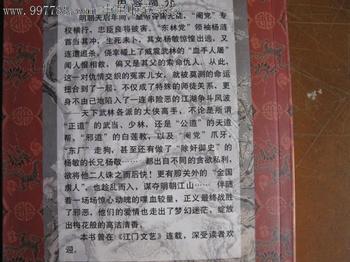 www.997788.com
内容简介
明朝天启年间，皇帝昏庸无能，“阉党”专
权横行，忠臣良将被害，“东林党”领袖杨涟
首当其冲，生死未卜，其女杨敏惊惶出逃，又
连遭追杀，侥幸碰上了威震武林的“血手人屠”
闻人恨相救，偏又是其父的索命仇人，从此，
这一对仇情交织的冤家儿女，就被莫测的命运
扭合到了一起，不仅成了特殊的师徒关系，更
身不由己地陷入了一连串险恶的江湖争斗风波
——天下武林各派的大侠高手，不论是所谓
“正道”的武当、少林，还是“公道”的天道
帮，“邪道”的白莲教，以及“阉党”爪牙，
“东厂”走狗，甚至还有做了“除奸御史”的
杨敏的长兄杨敬…… 都出自不同的贪欲私利，
欲将他二人诛之而后快！更有那关外的“金国
虏人”，也趁乱而入，谋夺明朝江山…… 伴随
着一场场惊心动魄的喋血较量，正义最终战胜
了邪恶，他们的爱情也走出了梦幻迷茫，绽放
出梅花般的高洁清香。
本书曾在《江门文艺》连载，深受读者欢
迎。